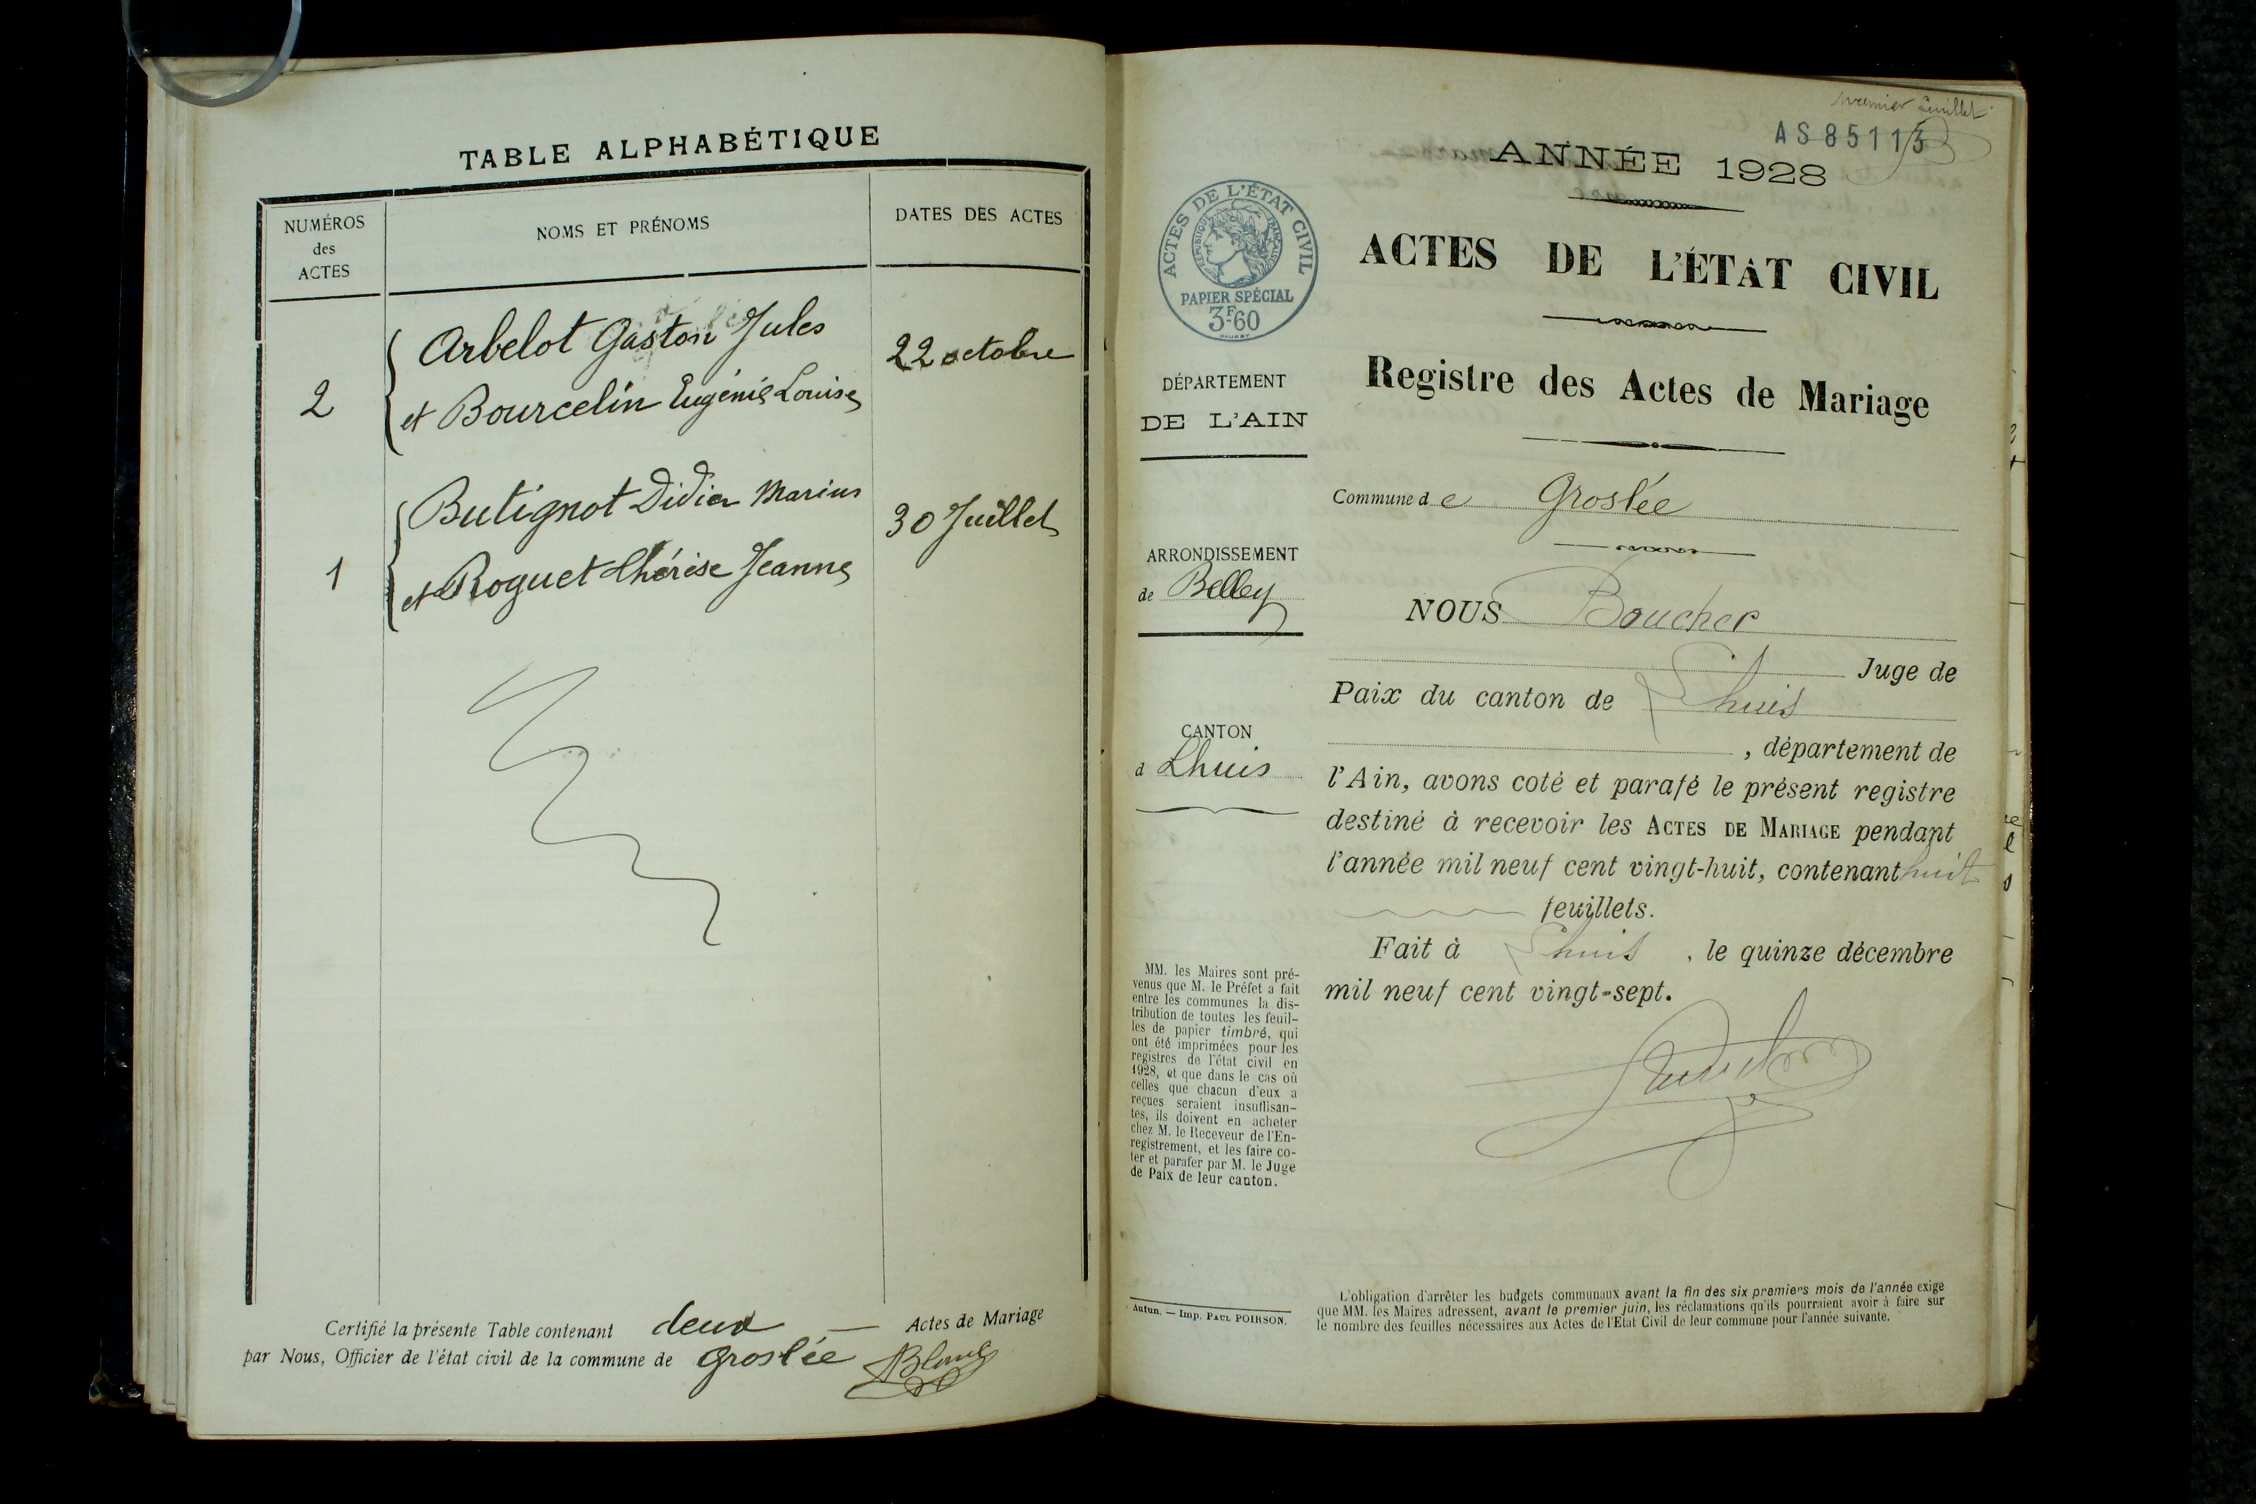 TABLE ALPHABÉTIQUE
NUMÉROS
des
ACTES
NOMS ET PRÉNOMS
DATES DES ACTES
Arbelot Gaston Jules
22 octobre
2
et Bourcelin Eugénie Louise
Butignot Didier Marius
30 Juillet
1
et Roguet Thérèse Jeanne
Certifié la présente Table contenant deux — Actes de Mariage
par Nous, Officier de l'état civil de la commune de Groslée
premier feuillet
AS 85113
ANNÉE 1928
ACTES DE L'ÉTAT CIVIL
RÉPUBLIQUE FRANÇAISE
PAPIER SPÉCIAL
3F60
ACTES DE L'ÉTAT CIVIL
Registre des Actes de Mariage
DÉPARTEMENT
DE L'AIN
Commune de Groslée
ARRONDISSEMENT
de Belley
NOUS Boucher
Juge de
Paix du canton de Lhuis
CANTON
d Lhuis
, département de
l'Ain, avons coté et parafé le présent registre
destiné à recevoir les ACTES DE MARIAGE pendant
l'année mil neuf cent vingt-huit, contenant huit
feuillets.
Fait à Lhuis, le quinze décembre
mil neuf cent vingt-sept.
MM. les Maires sont pré-
venus que M. le Préfet a fait
entre les communes la dis-
tribution de toutes les feuil-
les de papier timbré, qui
ont été imprimées pour les
registres de l'état civil en
1928, et que dans le cas où
celles que chacun d'eux a
reçues seraient insuffisan-
tes, ils doivent en acheter
chez M. le Receveur de l'En-
registrement, et les faire co-
ter et parafer par M. le Juge
de Paix de leur canton.
Autun. — Imp. PAUL POIRSON.
L'obligation d'arrêter les budgets communaux avant la fin des six premiers mois de l'année exige
que MM. les Maires adressent, avant le premier juin, les réclamations qu'ils pourraient avoir à faire sur
le nombre des feuilles nécessaires aux Actes de l'Etat Civil de leur commune pour l'année suivante.